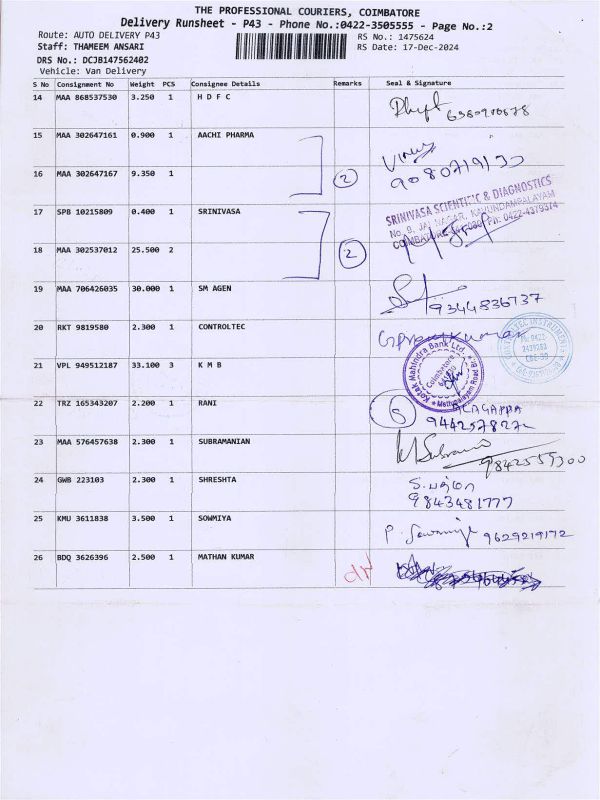 THE PROFESSIONAL COURIERS, COIMBATORE
Delivery Runsheet - P43 - Phone No.:0422-3505555 - Page No.:2
Route: AUTO DELIVERY P43 RS No.: 1475624
Staff: THAMEEM ANSARI RS Date: 17-Dec-2024
DRS No.: DCJB147562402
Vehicle: Van Delivery
S No Consignment No Weight PCS Consignee Details Remarks Seal & Signature
14 MAA 868537530 3.250 1 H D F C
15 MAA 302647161 0.900 1 AACHI PHARMA
16 MAA 302647167 9.350 1 2
17 SPB 10215809 0.400 1 SRINIVASA
SRINIVASA SCIENTIFIC & DIAGNOSTICS
18 MAA 302537012 25.500 2 2
19 MAA 706426035 30.000 1 SM AGEN 9344836737
20 RKT 9819580 2.300 1 CONTROLTEC
21 VPL 949512187 33.100 3 K M B
Kotak Mahindra Bank Ltd.
22 TRZ 165343207 2.200 1 RANI 5 ALAGAPPA
23 MAA 576457638 2.300 1 SUBRAMANIAN
24 GWB 223103 2.300 1 SHRESHTA
9843481777
25 KMU 3611838 3.500 1 SOWMIYA 9629219172
26 BDQ 3626396 2.500 1 MATHAN KUMAR